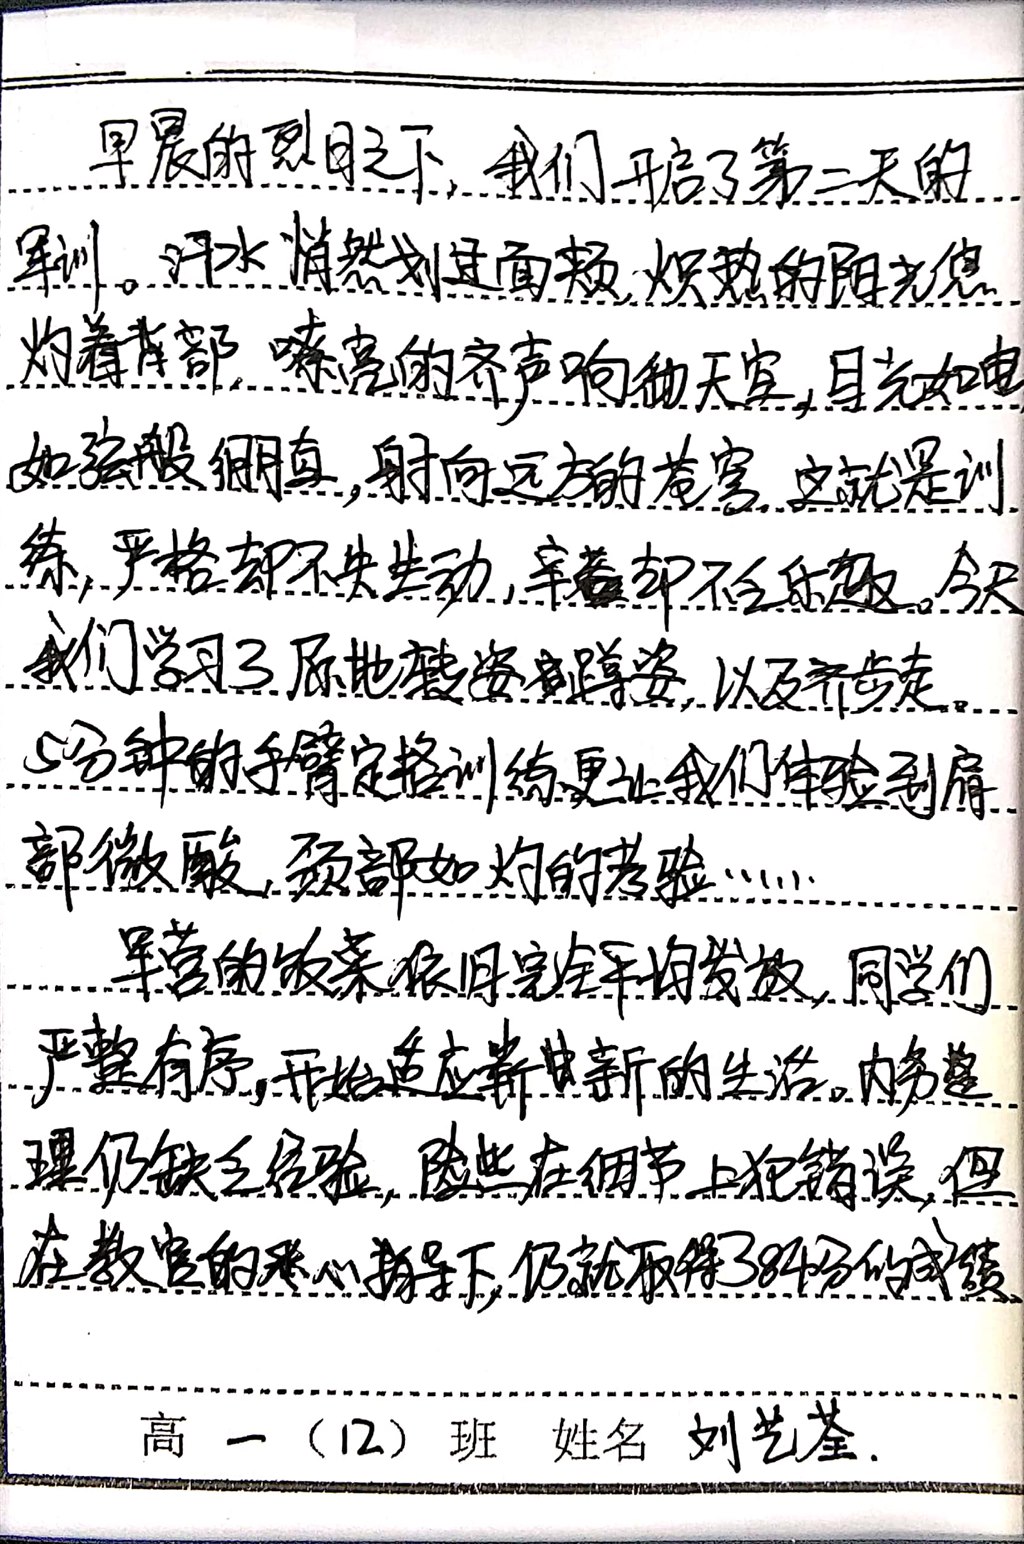 早晨的烈日之下，我们开启了第二天的
军训。汗水悄然划过面颊，炽热的阳光焦
灼着背部，嘹亮的齐声响动天宫，目光如电
如弦般绷直，射向远方的苍穹，这就是训
练，严格却不失生动，辛苦却不乏乐趣。今天
我们学习了原地转姿蹲姿，以及齐步走。
5分钟的手臂定格训练更让我们体验到肩
部微酸，颈部如灼的考验……
军营的饭菜依旧完全平均发放，同学们
严整有序，开始适应崭新的生活。内务整
理仍缺乏经验，险些在细节上犯错误，但
在教官的悉心指导下，仍就取得了84分的成绩。
高一（12）班 姓名 刘艺荃.